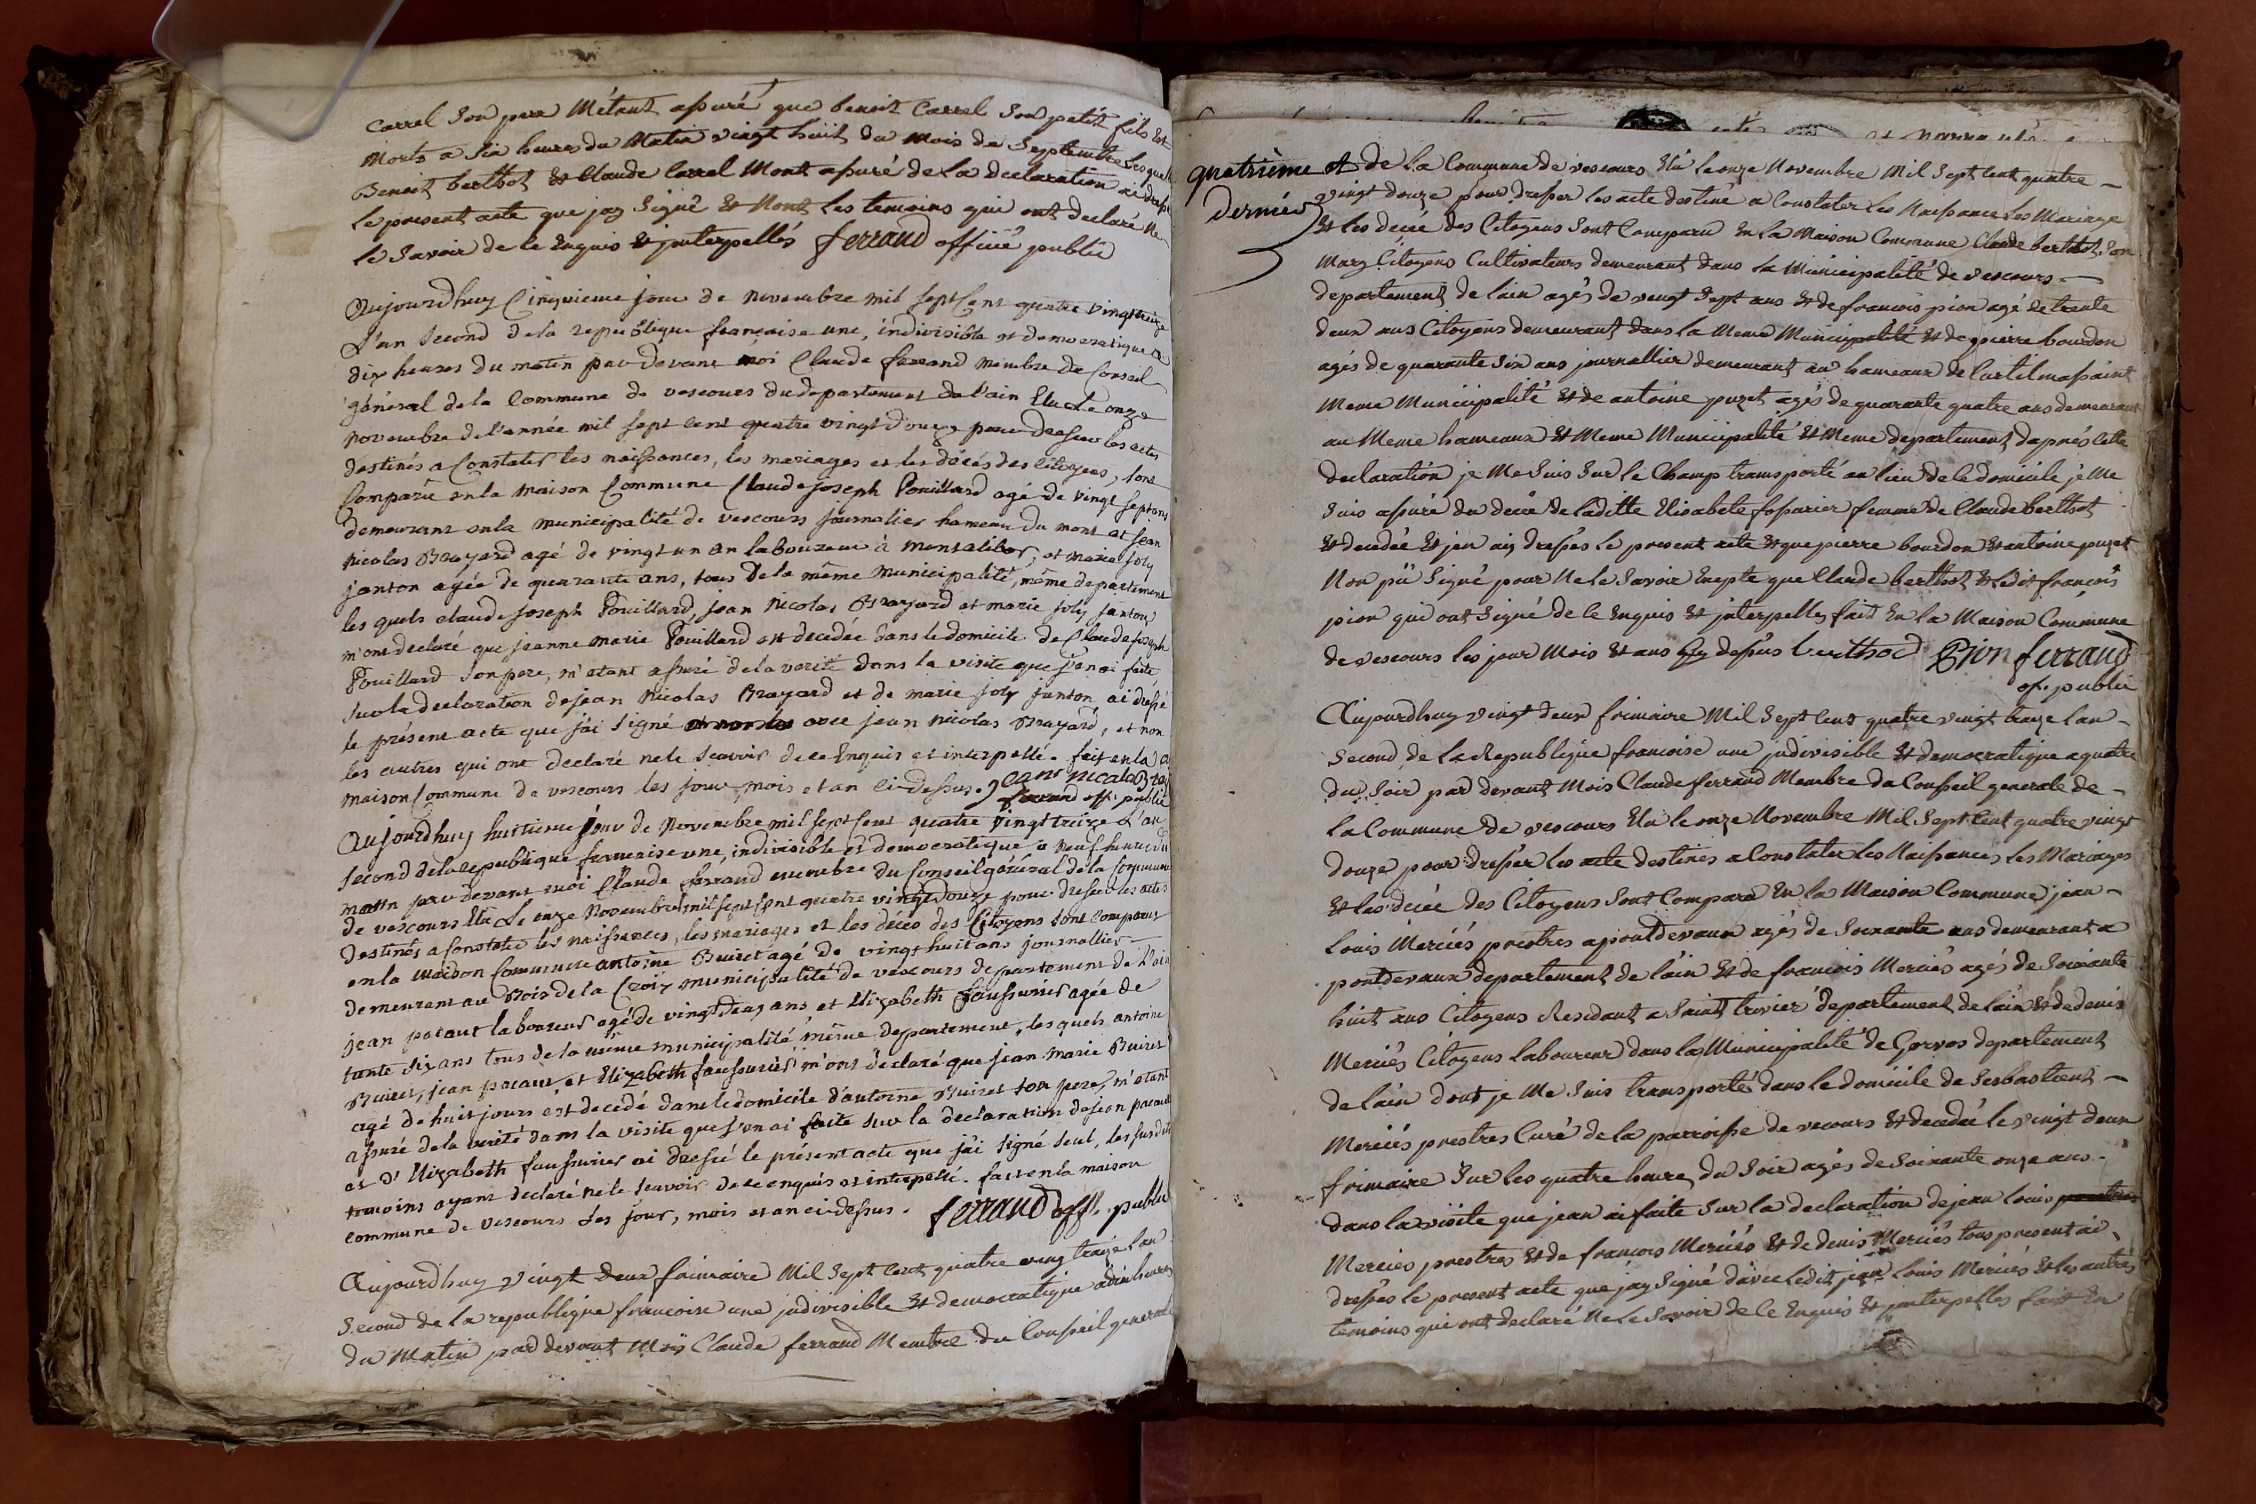 Carrel Son pere Métant assuré que benoit Carrel Son petit fils est
Morts a Six heures du Matin vingt huit du Mois de Septembre Lesquels
Benoit berthot et Claude Carrel Mont assuré de La declaration ai dressé
le present acte que jay Signé et Nont Les temoins qui ont declaré Ne
le Savoir de ce Enquis et jnterpellés ferraud officié public
Aujourdhuy Cinquieme jour de novembre mil sept Cent quatre vingt treize
L'an Second de la republique française une, indivisible et democratique a
dix heures du matin par devant moi Claude ferrand membre du Conseil
général de la Commune de vescours du departement de l'ain Elu Le onze
novembre de l'année mil sept cent quatre vingt douze pour dresser les actes
destinés a Constater les naissances, les mariages et les décés des Citoyens, sont
Comparû en la maison Commune Claude joseph Pouillard agé de vingt sept ans
demeurant en la municipalité de vescours journalier hameau du mont et jean
nicolas Brayard agé de vingt un an laboureur à montaliber, et marie joly
janton agée de quarante ans, tous de la même municipalité, même departement
les quels claude joseph Pouillard, jean nicolas Brayard et marie joly janton
m'ont declaré que jeanne marie Pouillard est decedée dans le domicile de Claude joseph
Pouillard son pere, m'etant assuré de la verité dans la visite que j'en ai faite
sur la declaration de jean nicolas Brayard et de marie joly janton, ai dressé
le présent acte que j'ai signé avec jean nicolas Brayard, et non
les autres qui ont declaré ne le scavoir de ce Enquis et interpellé. fait en la
maison Commune de vescours les jour, mois et an ci-dessus. jean nicolas Bray
ferrand off. public
Aujourdhuy huitieme jour de Novembre mil sept Cent quatre vingt treize L'an
second de la republique française une, indivisible et democratique a neuf heures du
matin par devant moi Claude ferrand membre du Conseil général de la Commune
de vescours Elu Le onze Novembre mil sept Cent quatre vingt douze pour dresser les actes
destinés a Constater les naissances, les mariages et les décés des Citoyens sont comparus
en la maison Commune antoine Buiret agé de vingt huit ans journallier
demeurant au Bois de la Croix municipalité de vescours departement de l'ain
jean pacaut laboureur agé de vingt deux ans et Elizabeth faussurier agée de
tante six ans tous de la même municipalité même departement, les quels antoine
Buiret, jean pacaut, et Elizabeth faussurier m'ont declaré que jean marie Buiret
agé de huit jours est decedé dans le domicile d'antoine Buiret son pere, m'etant
assuré de la verité dans la visite que j'en ai faite sur la declaration de jean pacaut
et d'Elizabeth faussurier ai dressé le présent acte que j'ai signé seul, les susdits
temoins ayant declaré ne le scavoir de ce enquis et interpellé. fait en la maison
commune de vescours les jour, mois et an ci-dessus. ferraud off. public
Aujourdhuy vingt deux frimaire Mil Sept Cent quatre ving traize Lan
Second de la republique françoise une jndivisible et democratique a dix heures
du Matin par devant Moy Claude ferrand Membre du Conseil general
quatrième et
dernier
de La Commune de vescours Elu le onze Novembre Mil Sept Cent quatre
vingt douze pour dresser les acte destiné a Constater les Naissance les Mariage
et les décée des Citoyens Sont Comparu En la Maison Commune Claude berthot Son
Mary Citoyens Cultivateurs demeurant dans la Municipalité de vescours
departement de l'ain agés de vengt Sept ans et de francois pion agé de trante
deux ans Citoyens demeurant dans la Meme Municipalité et de pierre bourdon
agés de quarante Six ans journallier demeurant au hameaux de
Meme Municipalité et de antoine puzet agés de quarante quatre ans demeurant
au Meme hameaux et Meme Municipalité et Meme departement dapres Cette
declaration je Me Suis Sur le Champ transporté au lieu de le domicile je Me
Suis assuré du décée de laditte Elisabete fossurier femme de Claude berthot
et decedée et jen aiy dresses le present acte et que pierre bourdon et antoine puzet
Non pû Signé pour Ne le Savoir Excepte que Claude berthot et ledit françois
pion qui ont Signé de Ce Enquis et jnterpelley fait En la Maison Commune
de vescours les jour Mois et ans cy dessus berthod Pion ferraud
of. public
Aujourdhuy vingt deux frimaire Mil Sept Cent quatre vingt traize Lan
Second de La Republique francoise une jndivisible et democratique a quatre
du Soir par devant Mois Claude ferraud Membre du Conseil generale de
la Commune de vescours Elu le onze Novembre Mil Sept Cent quatre vingt
douze pour dresser les acte destines a Constater les Naissances les Mariages
et les décée des Citoyens Sont Comparu En la Maison Commune jean
Louis Merciés prestres apontdevaux agés de Soixante ans demeurant a
pontdevaux departement de l'ain et de francois Merciés agés de Soixante
huit ans Citoyens Residant a Saint trivier departement de lain et de denis
Merciés Citoyens laboureur dans la Municipalité de Gorvos departement
de lain dont je Me Suis transporté dans le domicile de Sesbastient
Merciés prestres Curé de la parroisse de vecours et decedée le vingt deux
frimaire Sur les quatre heure du Soir agés de Soixante onze ans
dans la visite que jean ai faite Sur la declaration de jean Louis
Mercies prestres et de francois Merciés et de denis Merciés tous present ai
dresses le present acte que jay Signé davec ledit jean Louis Merciés et les autres
temoins qui ont declaré Ne le Savoir de Ce Enquis et jnterpelles fait En